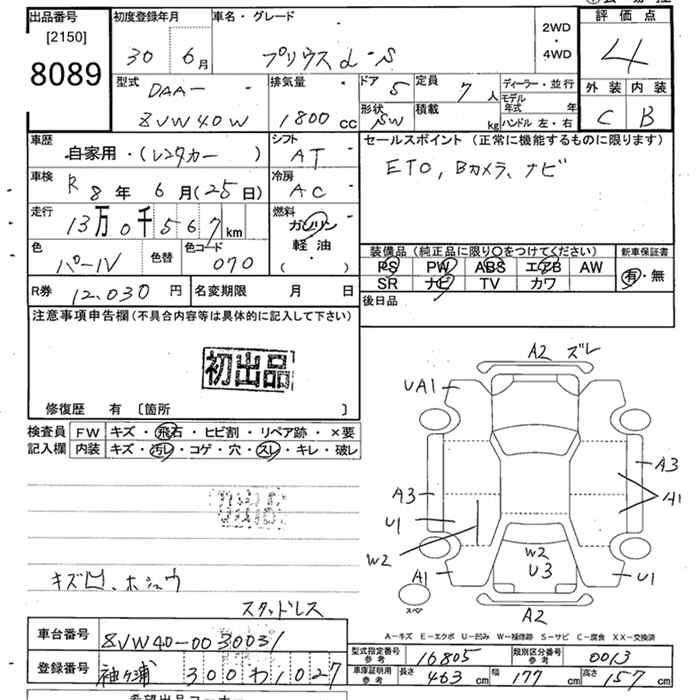 出品番号
[2150]
8089
初度登録年月
30 6月
車名・グレード
プリウスα S
2WD
・
4WD
評価点
4
外装 内装
C B
型式
DAA-
ZVW40W
排気量
1800 cc
ドア 5
形状 SW
定員 7 人
積載 kg
ディーラー・並行
モデル年式 年
ハンドル 左・右
車歴
自家用・(レンタカー )
シフト
AT
セールスポイント(正常に機能するものに限ります)
ETC, Bカメラ、ナビ
車検
R 8年 6月(25日)
冷房
AC
走行
13万0千567km
燃料
ガソリン
軽油
( ・ )
色
パール
色替
色コード
070
装備品(純正品に限り○をつけてください)
新車保証書
PS PW ABS エアB AW
SR ナビ TV カワ
有・無
R券 12,030円
名変期限 月 日
後日品
注意事項申告欄(不具合内容等は具体的に記入して下さい)
初出品
修復歴 有 [箇所 ]
検査員
記入欄
FW キズ・飛石・ヒビ割・リペア跡・×要
内装 キズ・汚レ・コゲ・穴・スレ・キレ・破レ
キズ凹、ホシュウ
スタッドレス
A2 ズレ
UA1
A3
A1
A3
U1
W2
W2
U3
A1
U1
スペア
A2
A-キズ E-エクボ U-凹み W-補修跡 S-サビ C-腐食 XX-交換済
車台番号
ZVW40-0030031
登録番号
袖ヶ浦 300 わ 1027
型式指定番号
参考
16805
類別区分番号
参考
0013
車庫証明用
参考
長さ 463 cm 幅 177 cm 高さ 157 cm